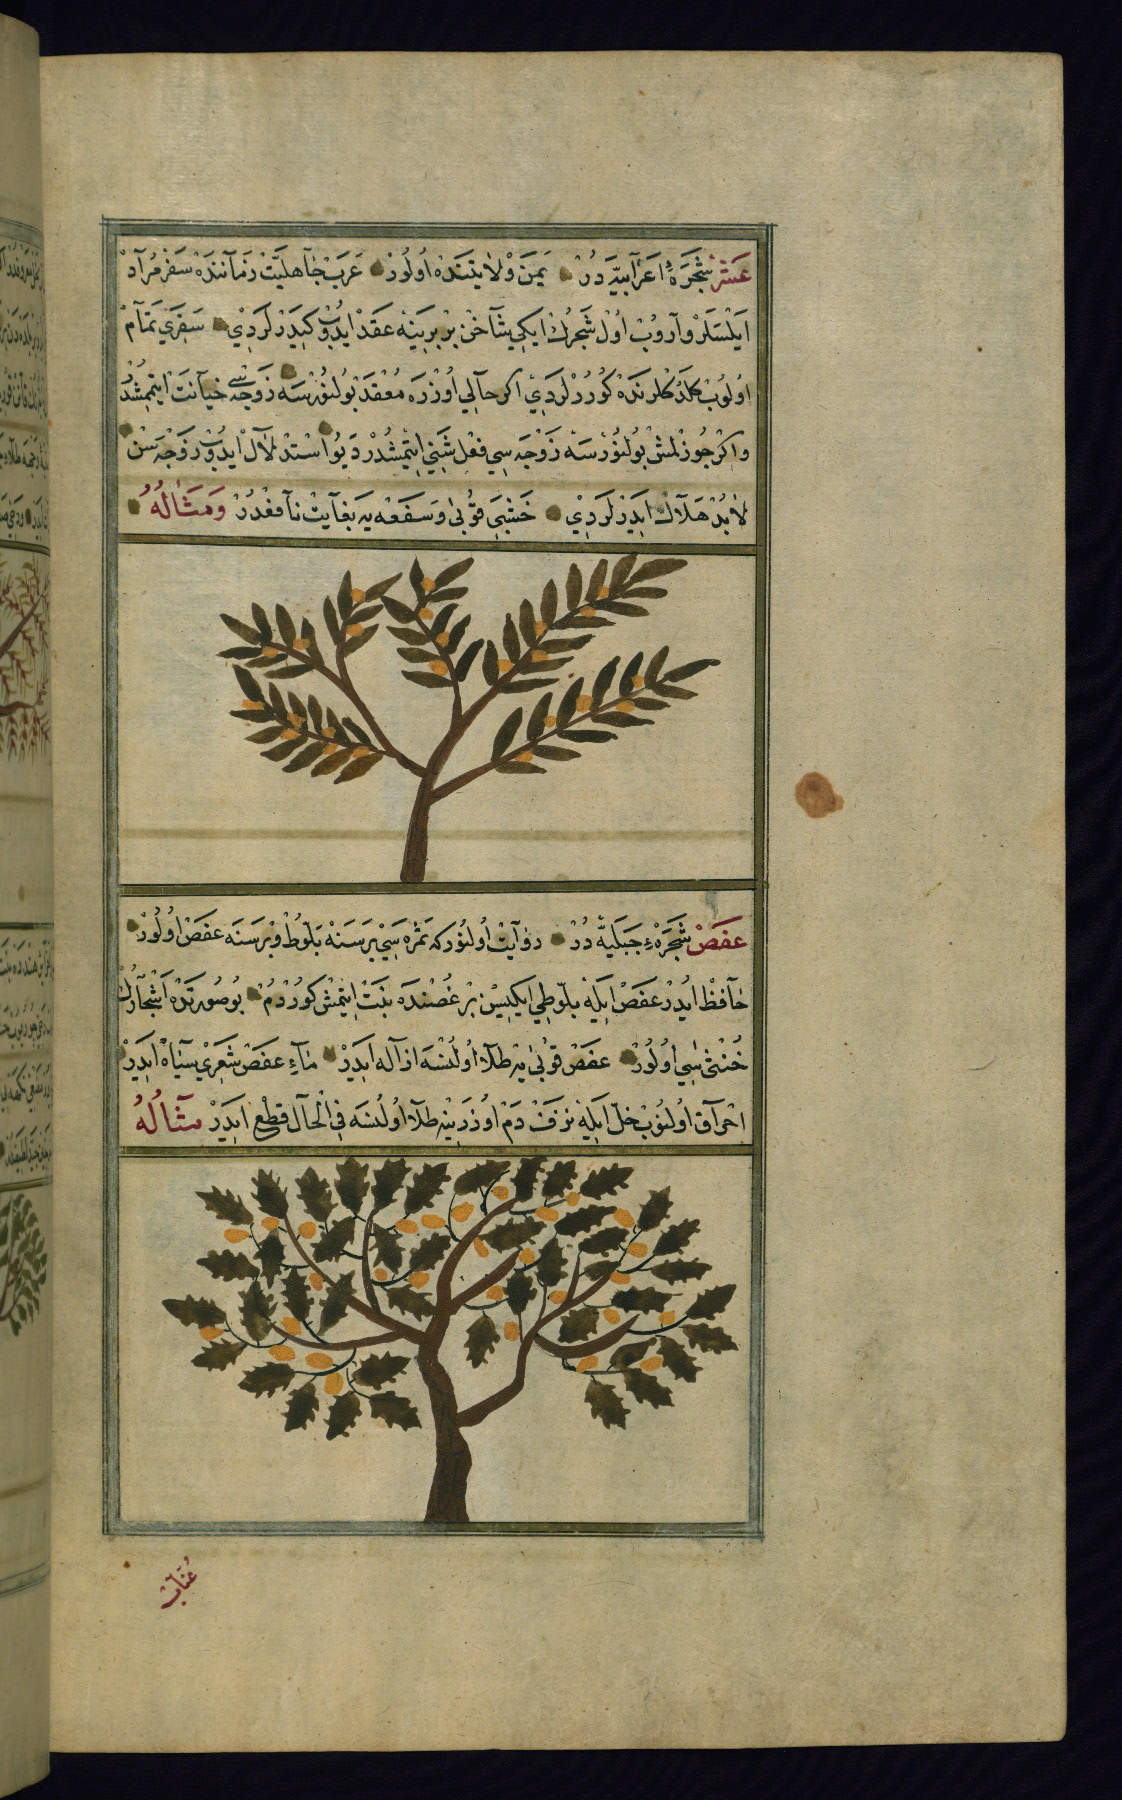 عشر شجرهٔ اعرابیه در یمن ولایتنده اولور عرب جاهلیت زماننده سفر مراد
ایلسلر واروب اول شجرك ایکی شاخن بربرینه عقد ایدوب کیدرلردی سفری تمام
اولوب کلدکلرنده کوررلردی اکر حالی اوزره معقد بولنورسه زوجهسی خیانت ایتمشدر
واکر چوزلمش بولنورسه زوجهسی فعل شنی ایتمشدر دیو استدلال ایدوب زوجهسن
لابد هلاك ایدرلردی خشبی قوبی وسفعهیه بغایت نافعدر ومثاله
عفص شجرهٔ جبلیه در روایت اولنور که ثمرهسی برسنه بلوط وبرسنه عفص اولور
حافظ ایدر عفص ایله بلوطی ایکیسن بر غصنده بنت ایتمش کوردم بو صورتده اشجارك
خنثیسی اولور عفص قوبی یه طلا اولنسه ازاله ایدر ماء عفص شعری سیاه ایدر
احراق اولنوب خل ایله نزف دم اوزرینه طلا اولنسه فی الحال قطع ایدر مثاله
عناب